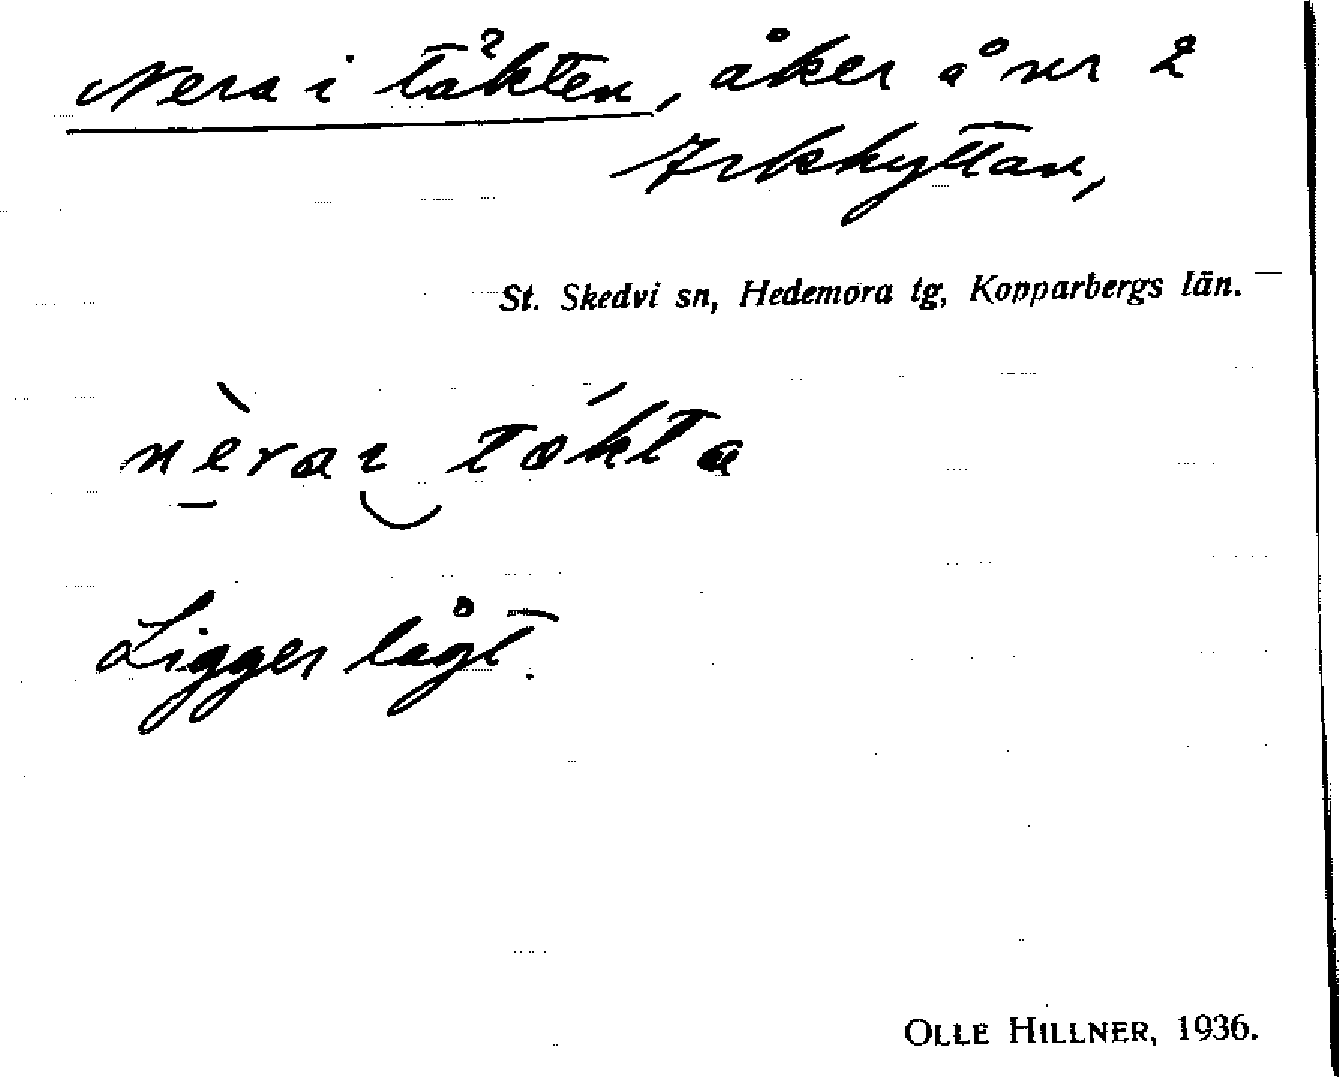 Nera i täkten, åker å nr 2
Arkhyttan,
St. Skedvi sn, Hedemora tg, Kopparbergs län.
nèrai tákta
Ligger lågt.
OLLE HILLNER, 1936.